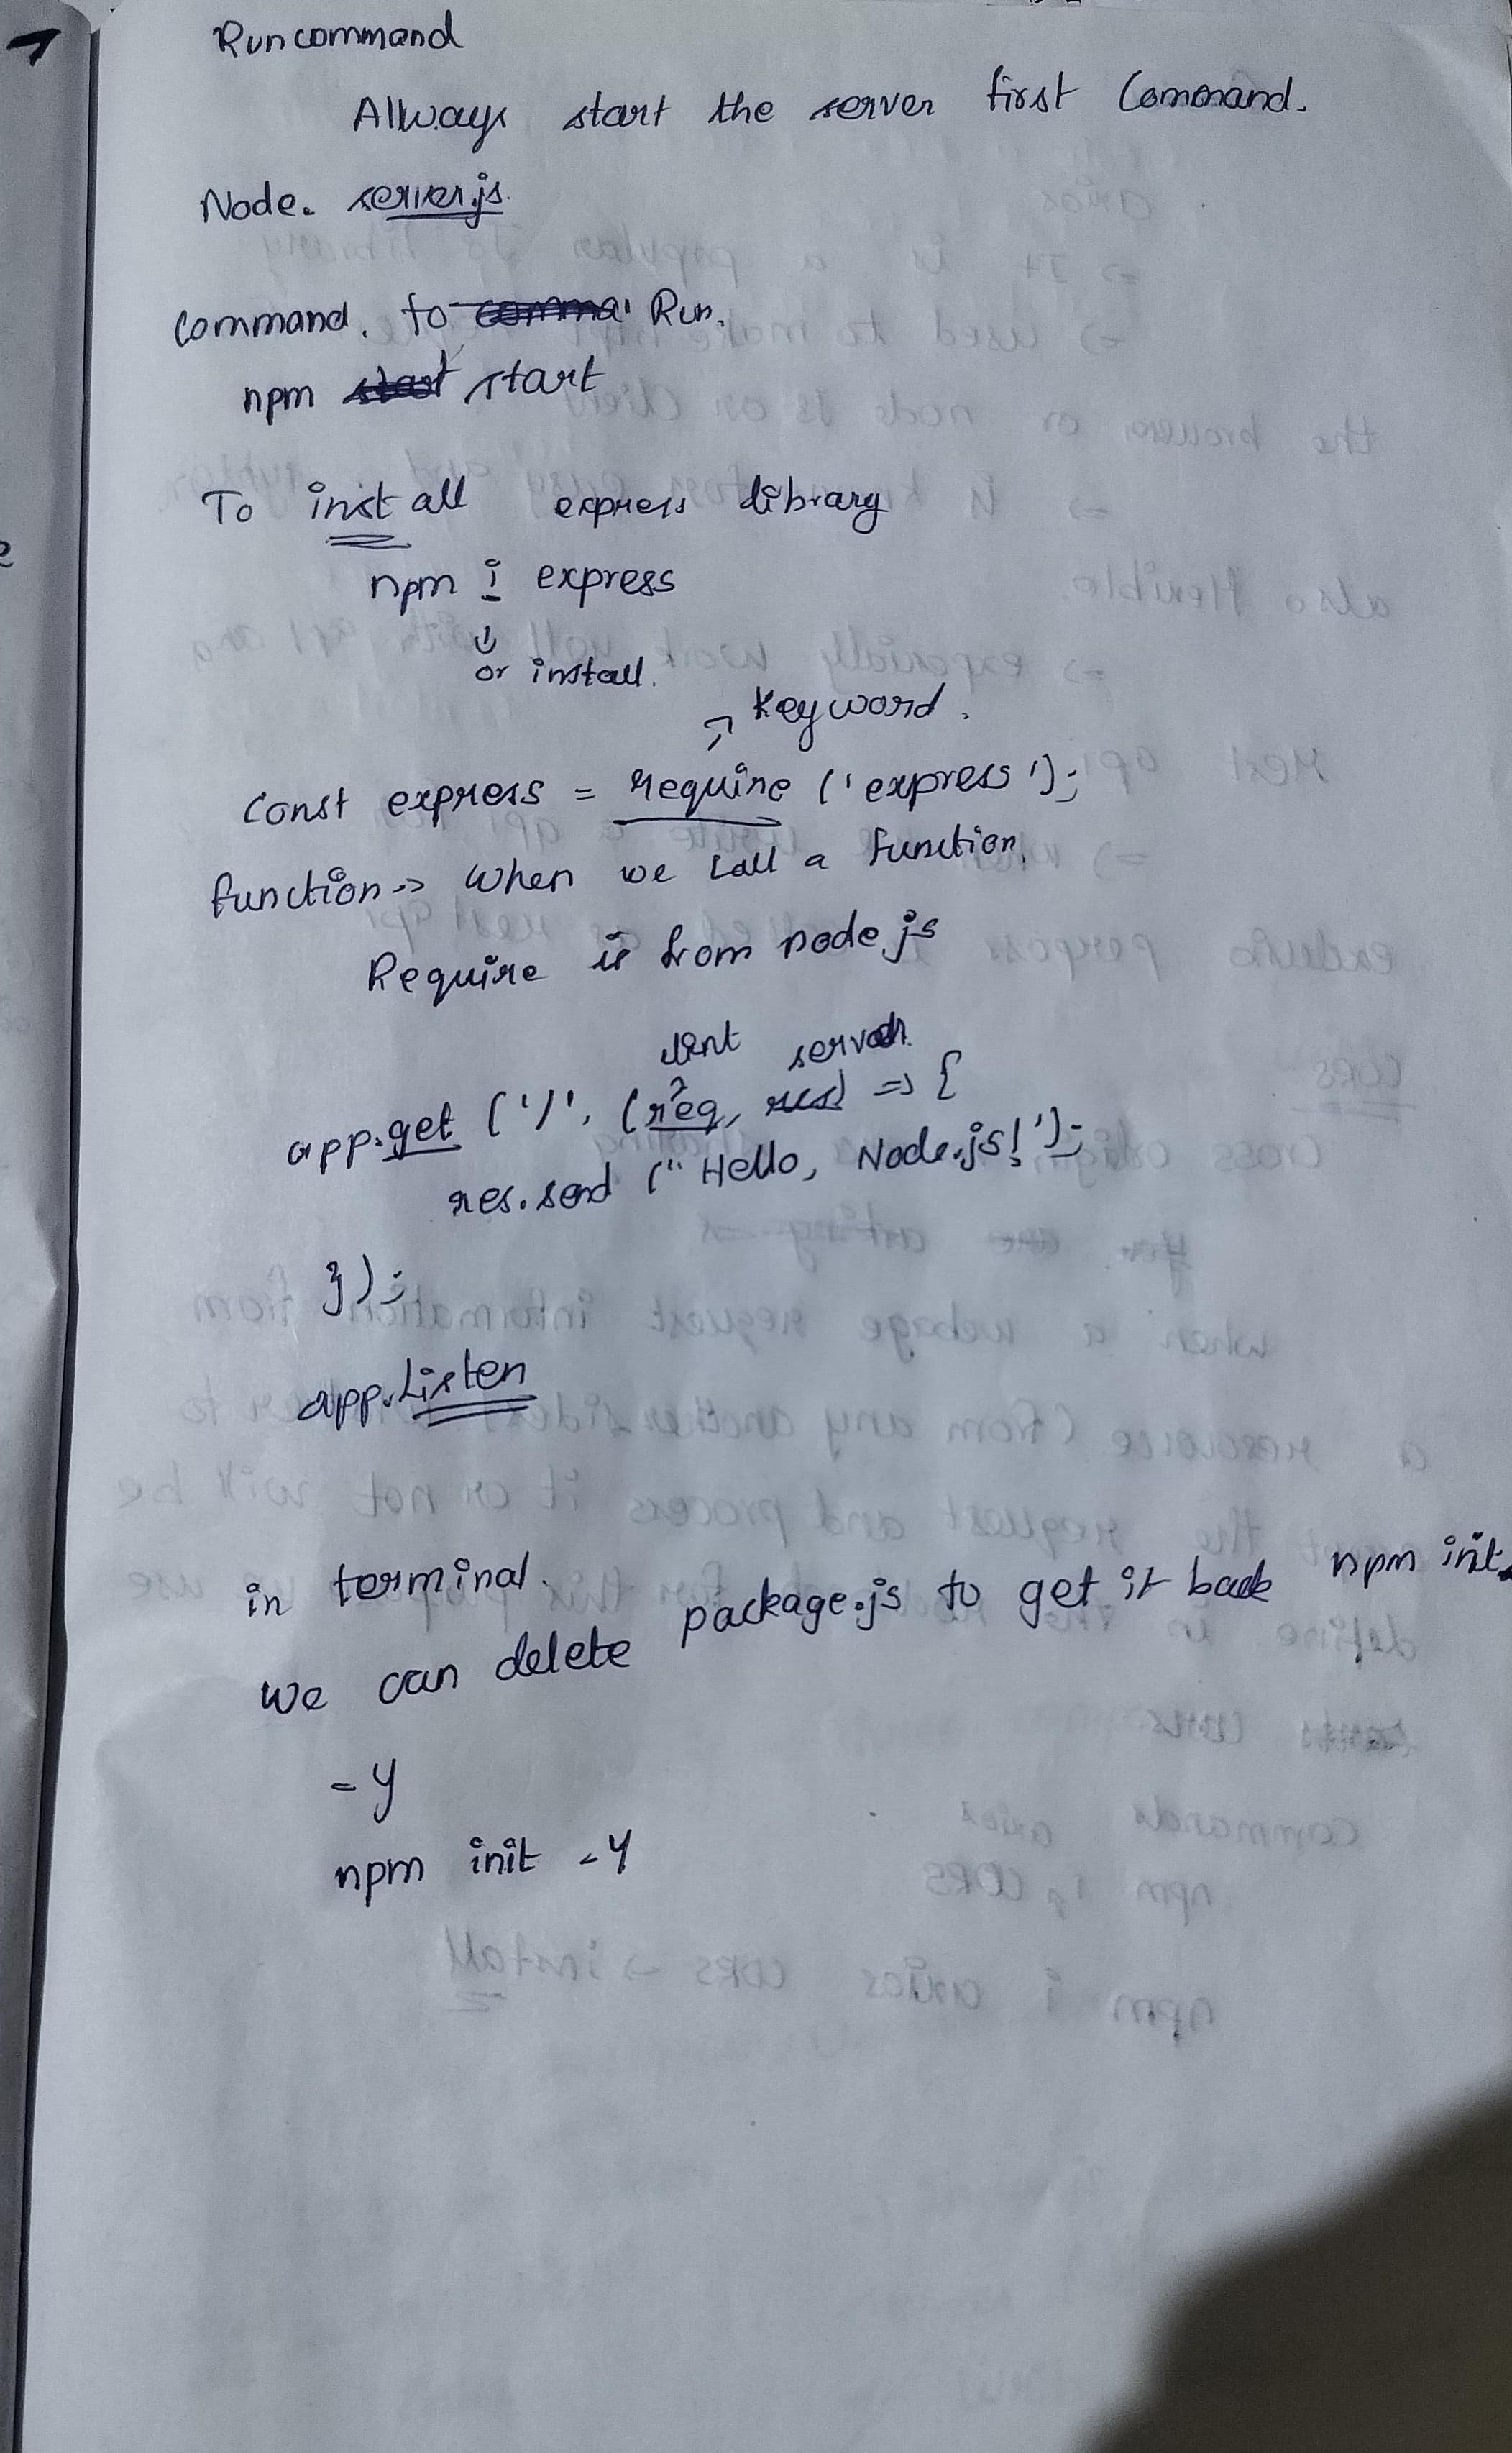 Run command
Always start the server first Command.
Node. server.js.
Command. to Run.
npm start
To install express library
npm i express
or install.
Keyword.
Const express = require ('express');
function -> When we call a function.
Require is from node js
server
app.get ('/', (req, res) => {
res.send (" Hello, Node.js!');
});
app.Listen
in terminal.
we can delete package.js to get it back npm init
-y
npm init -y